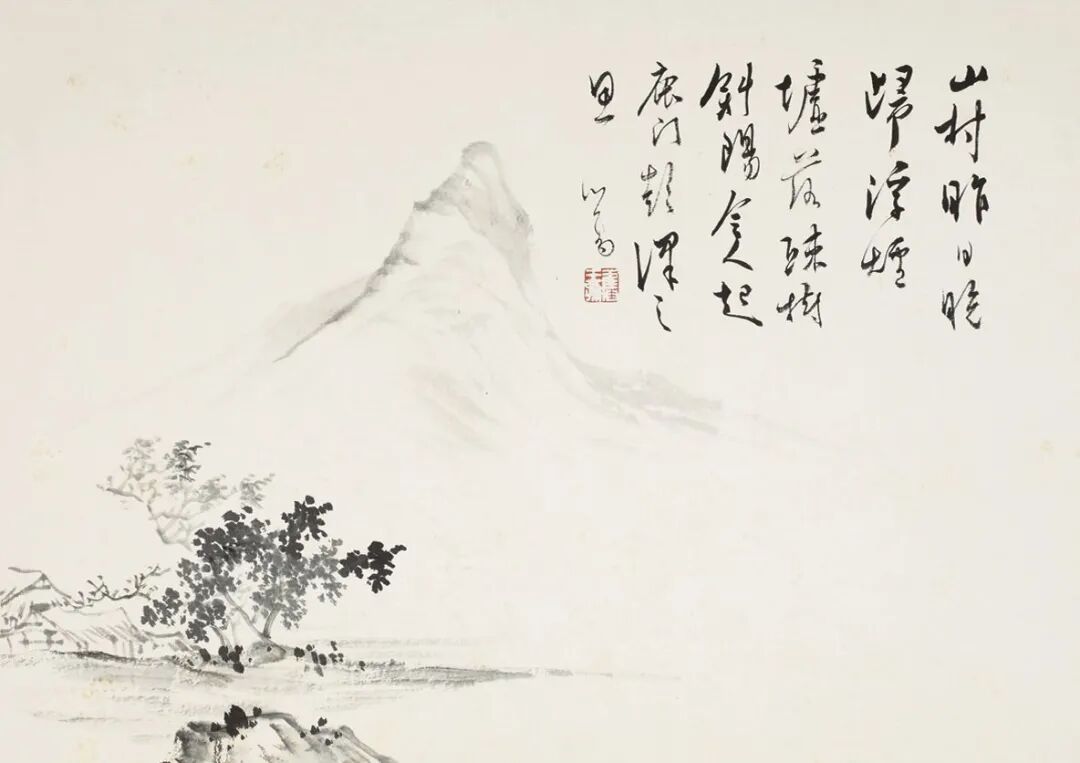 山村昨日晚
歸浮煙
墟落疎樹
斜陽令人起
鹿門彭澤之
思 心畬